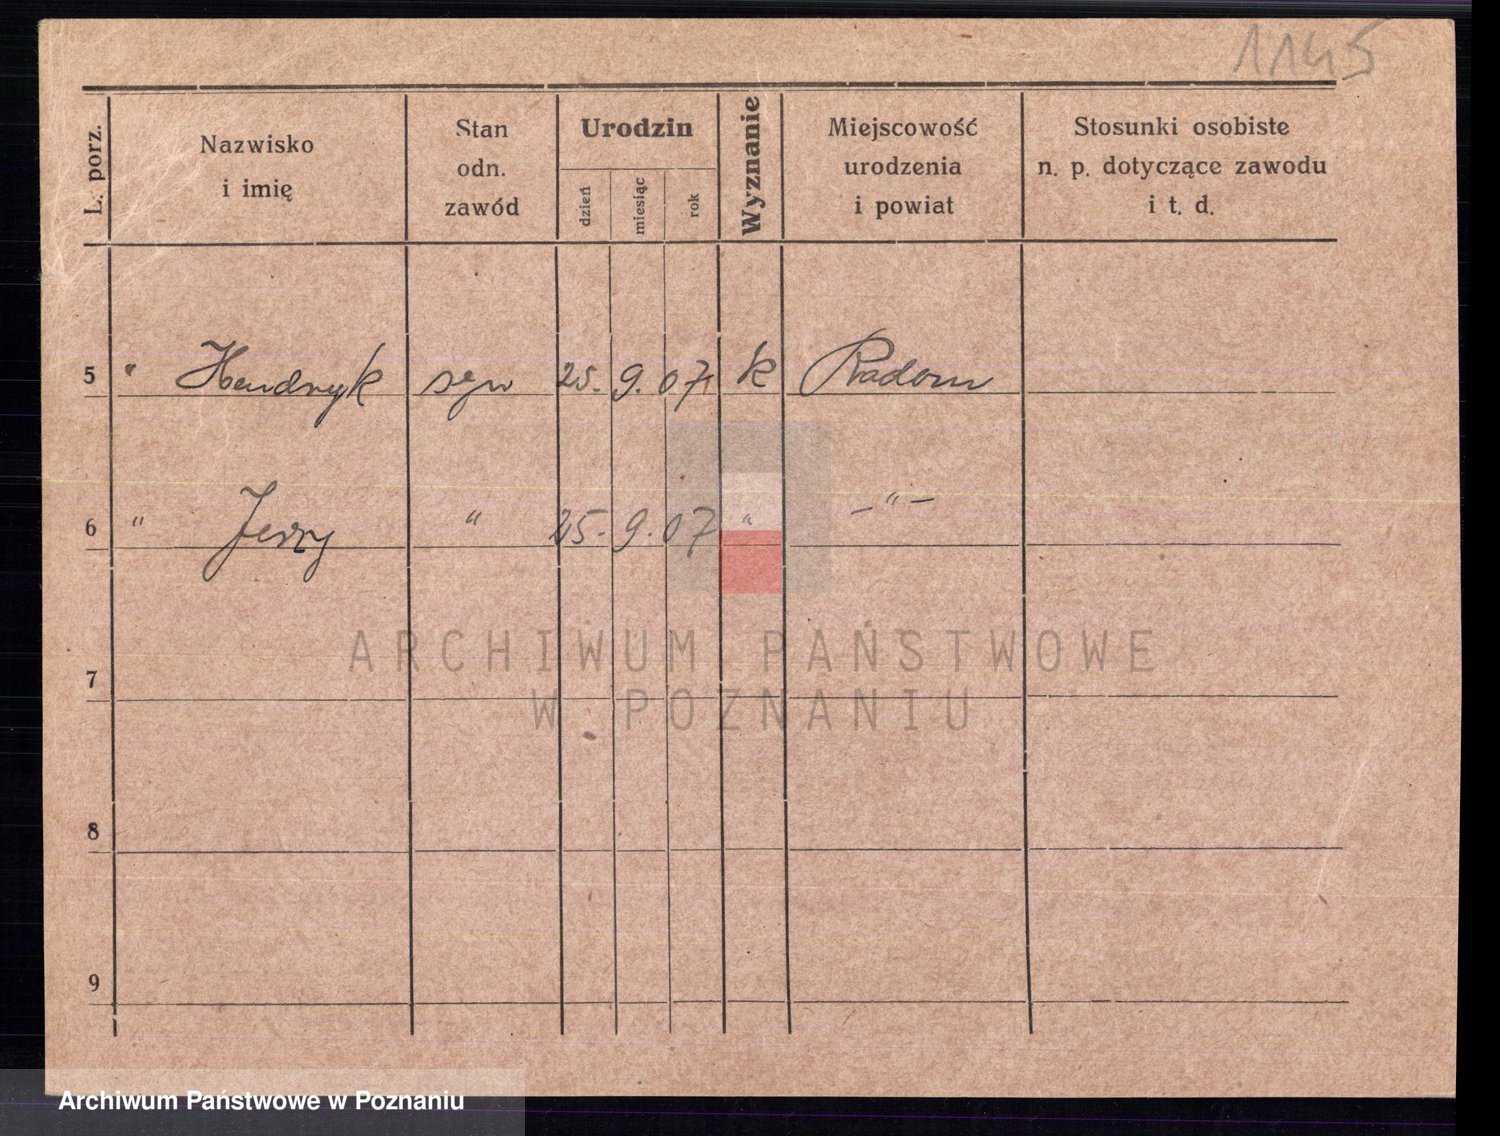 1145
L. porz.
Nazwisko
i imię
Stan
odn.
zawód
Urodzin
dzień
miesiąc
rok
Wyznanie
Miejscowość
urodzenia
i powiat
Stosunki osobiste
n. p. dotyczące zawodu
i t. d.
5 " Hendryk syn 25. 9. 07 k Radom
6 " Jerzy " 25. 9. 07 " -"-
7
8
9
ARCHIWUM PAŃSTWOWE
W POZNANIU
Archiwum Państwowe w Poznaniu